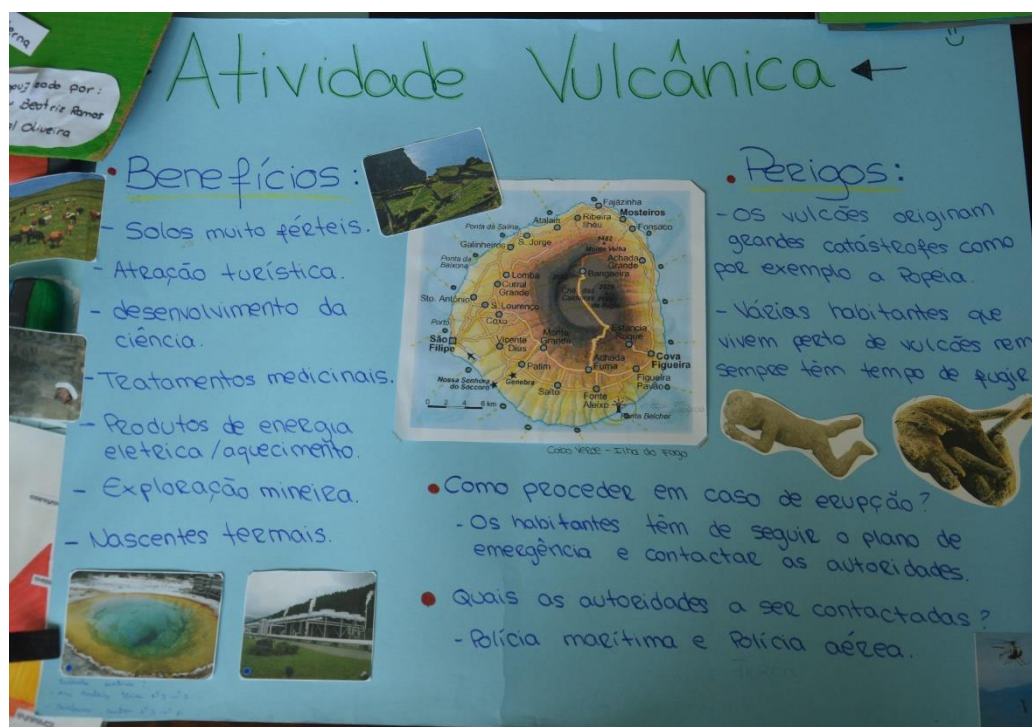 Atividade Vulcânica
erna
zado por:
Beatriz Ramos
Oliveira
Benefícios:
- Solos muito férteis.
- Atração turística.
- desenvolvimento da
ciência.
- Tratamentos medicinais.
- Produtos de energia
eletrica/aquecimento.
- Exploração mineira.
- Nascentes termais.
Fajãzinha
Mosteiros
Ribeira
Ilheu
Atalaia
Fonsaco
Ponta da Salina
S. Jorge
Galinheiros
Monte Velha
Achada
Grande
Ponta da
Baixona
Bangaeira
Lomba
Curral
Grande
Sto. António
S. Lourenço
Coxo
Porto
Estancia
Roque
São
Filipe
Vicente
Dias
Monte
Grande
Achada
Furna
Cova
Figueira
Patim
Figueira
Pavão
Nossa Senhora
do Socorro
Genebra
Salto
Fonte
Aleixo
0 2 4 6 km
Ponta Belcher
Cabo Verde - Ilha do Fogo
Perigos:
- Os vulcões originam
grandes catástrofes como
por exemplo a Popeia.
- Várias habitantes que
vivem perto de vulcões nem
sempre têm tempo de fugir
Como proceder em caso de erupção?
- Os habitantes têm de seguir o plano de
emergência e contactar as autoridades.
Quais as autoridades a ser contactadas?
- Polícia marítima e Polícia aérea.